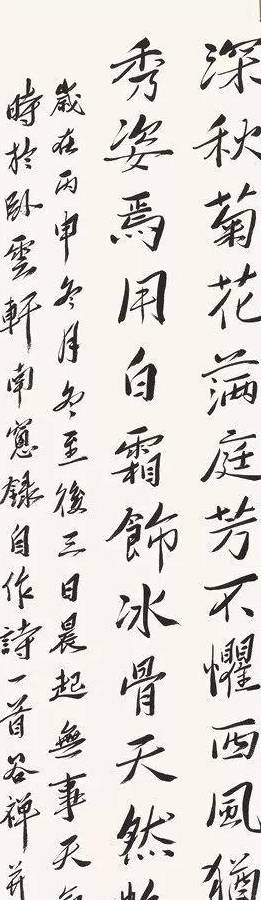 深秋菊花滿庭芳不懼西風猶
秀姿焉用白霜飾冰骨天然
歲在丙申冬月冬至後三日晨起無事天氣
時於卧雲軒南窗錄自作詩一首谷禅并